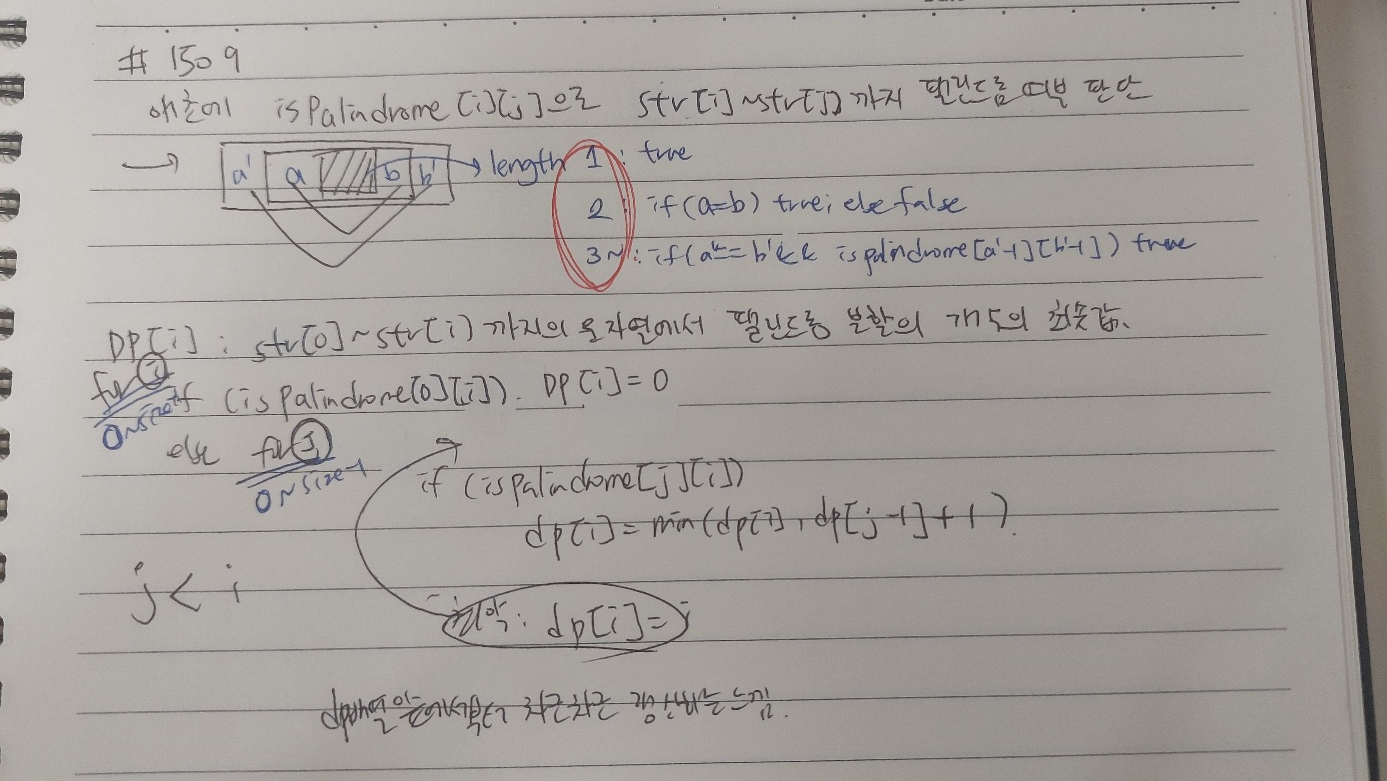 # 1509
애초에 isPalindrome[i][j]으로 str[i]~str[j]까지 팰린드롬 여부 판단
→ a' a b b' → length 1 : true
2 : if(a=b) true; else false
3~ : if(a'==b' && ispalindrome[a'-1][b'-1]) true
DP[i] : str[0]~str[i] 까지의 문자열에서 팰린드롬 분할의 개수의 최솟값.
for i
0~size if (isPalindrome[0][i]). DP[i]=0
else for j
0~size-1
if (ispalindrome[j][i])
dp[i]=min(dp[i], dp[j-1]+1)
j<i
최악: dp[i]=i
dp배열 앞에서부터 차근차근 갱신하는 느낌.